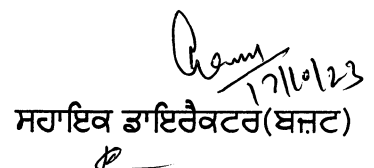 17/10/23
ਸਹਾਇਕ ਡਾਇਰੈਕਟਰ(ਬਜਟ)